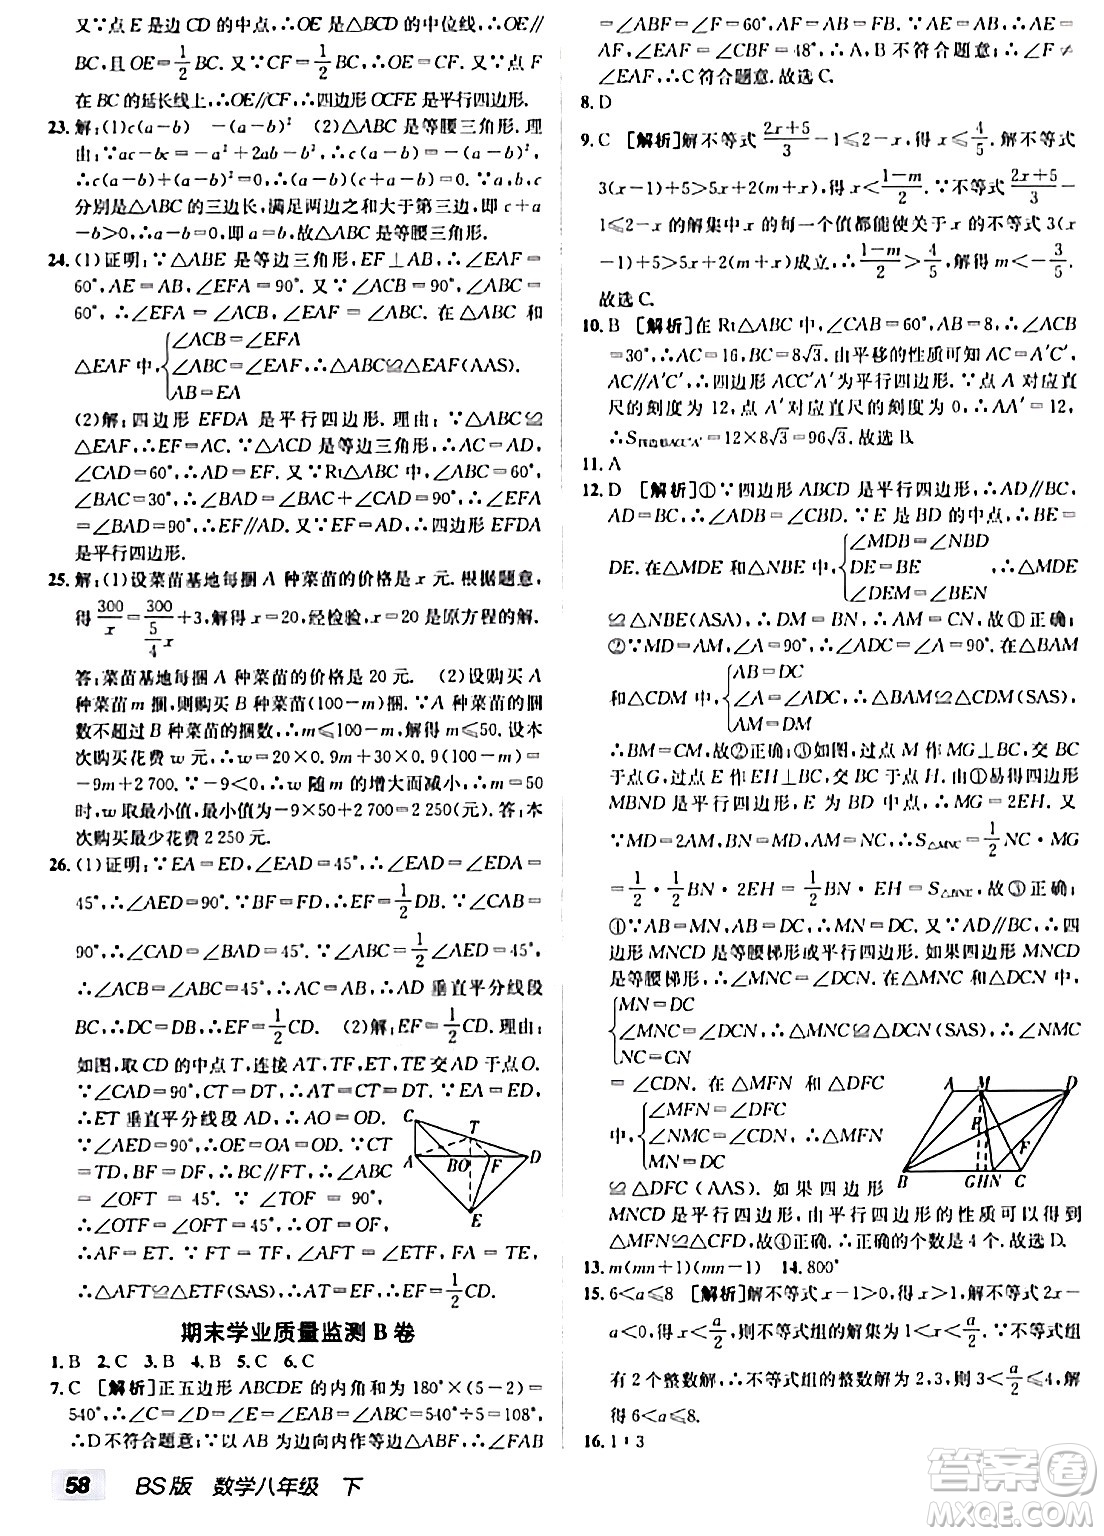 又∵点E是边CD的中点,∴OE是△BCD的中位线,∴OE∥
BC,且OE=1/2BC.又∵CF=1/2BC,∴OE=CF.又∵点F
在BC的延长线上,∴OE∥CF,∴四边形OCFE是平行四边形.
23.解:(1)c(a-b) -(a-b)² (2)△ABC是等腰三角形.理
由:∵ac-bc=-a²+2ab-b²,∴c(a-b)=-(a-b)²,
∴c(a-b)+(a-b)²=0,∴(a-b)(c+a-b)=0.∵a,b,c
分别是△ABC的三边长,满足两边之和大于第三边,即c+a
-b>0,∴a-b=0,即a=b,故△ABC是等腰三角形.
24.(1)证明:∵△ABE是等边三角形,EF⊥AB,∴∠EAF=
60°,AE=AB,∠EFA=90°.又∵∠ACB=90°,∠ABC=
60°,∴∠EFA=∠ACB,∠EAF=∠ABC.在△ABC和
△EAF中,{∠ACB=∠EFA
∠ABC=∠EAF,∴△ABC≌△EAF(AAS).
AB=EA
(2)解:四边形EFDA是平行四边形.理由:∵△ABC≌
△EAF,∴EF=AC.∵△ACD是等边三角形,∴AC=AD,
∠CAD=60°,∴AD=EF.又∵Rt△ABC中,∠ABC=60°,
∠BAC=30°,∴∠BAD=∠BAC+∠CAD=90°,∴∠EFA
=∠BAD=90°,∴EF∥AD.又∵EF=AD,∴四边形EFDA
是平行四边形.
25.解:(1)设菜苗基地每捆A种菜苗的价格是x元.根据题意,
得300/x=300/(5/4x)+3,解得x=20,经检验,x=20是原方程的解.
答:菜苗基地每捆A种菜苗的价格是20元. (2)设购买A
种菜苗m捆,则购买B种菜苗(100-m)捆.∵A种菜苗的捆
数不超过B种菜苗的捆数,∴m≤100-m,∴m≤50.设本
次购买花费w元,∴w=20×0.9m+30×0.9(100-m)=
-9m+2 700.∵-9<0,∴w随m的增大而减小,∴m=50
时,w取最小值,最小值为-9×50+2 700=2 250.答:本
次购买最少花费2 250元.
26.(1)证明:∵EA=ED,∠EAD=45°,∴∠EAD=∠EDA=
45°,∴∠AED=90°.又∵BF=FD,∴EF=1/2DB.∵∠CAB=
90°,∴∠CAD=∠BAD=45°.∵∠ABC=1/2∠AED=45°,
∴∠ACB=∠ABC=45°,∴AC=AB,∴AD垂直平分线段
BC,∴DC=DB,∴EF=1/2CD. (2)解:EF=1/2CD.理由:
如图,取CD的中点T,连接AT,TF,ET,TE交AD于点O.
∵∠CAD=90°,CT=DT,∴AT=CT=DT.∵EA=ED,
∴ET垂直平分线段AD,∴AO=OD.
∵∠AED=90°,∴OE=OA=OD.∵CT
=TD,BF=DF,∴BC∥FT,∴∠ABC
=∠OFT=45°.∵∠TOF=90°,
∴∠OTF=∠OFT=45°,∴OT=OF,
∴AF=ET.∵FT=TF,∠AFT=∠ETF,FT=TE,
∴△AFT≌△ETF(SAS),∴AT=EF,∴EF=1/2CD.
C T A B O F D E
期末学业质量监测B卷
1.B 2.C 3.B 4.B 5.C 6.C
7.C [解析]正五边形ABCDE的内角和为180°×(5-2)=
540°,∴∠C=∠D=∠E=∠EAB=∠ABC=540°÷5=108°,
∴D不符合题意;∵以AB为边向内作等边△ABF,∴∠FAB
=∠ABF=∠F=60°,AF=AB=FB.∵AE=AB,∴AE=
AF,∠EAF=∠EAB-∠FAB=48°,∴A,B不符合题意,∴∠F≠
∠EAF,∴C符合题意.故选C.
8.D
9.C [解析]解不等式(2x+5)/3-1≤2-x,得x≤4/5.解不等式
3(x-1)+5>5x+2(m+x),得x<(1-m)/2.∵不等式(2x+5)/3-
1≤2-x的解集中x的每一个值都能使关于x的不等式3(x
-1)+5>5x+2(m+x)成立,∴(1-m)/2>4/5,解得m<-3/5.
故选C.
10.B [解析]在Rt△ABC中,∠CAB=60°,AB=8,∴∠ACB
=30°,∴AC=16,BC=8√3.由平移的性质可知AC=A'C',
AC∥A'C',∴四边形ACC'A'为平行四边形.∵点A对应直
尺的刻度为12,点A'对应直尺的刻度为0,∴AA'=12,
∴S四边形ACC'A'=12×8√3=96√3.故选B.
11.A
12.D [解析]①∵四边形ABCD是平行四边形,∴AD∥BC,
AD=BC,∴∠ADB=∠CBD.∵E是BD的中点,∴BE=
DE.在△MDE和△NBE中,{∠MDB=∠NBD
DE=BE,∴△MDE
∠DEM=∠BEN
≌△NBE(ASA),∴DM=BN,∴AM=CN,故①正确;
②∵MD=AM,∠A=90°,∴∠ADC=∠A=90°.在△BAM
和△CDM中,{AB=DC
∠A=∠ADC,∴△BAM≌△CDM(SAS),
AM=DM
∴BM=CM,故②正确;③如图,过点M作MG⊥BC,交BC
于点G,过点E作EH⊥BC,交BC于点H.①易得四边形
MBND是平行四边形,E为BD中点,∴MG=2EH.又
∵MD=2AM,BN=MD,AM=NC,∴S△MNC=1/2NC·MG
=1/2·1/2BN·2EH=1/2BN·EH=S△BNE,故③正确;
④∵AB=MN,AB=DC,∴MN=DC.又∵AD∥BC,∴四
边形MNCD是等腰梯形或平行四边形.如果四边形MNCD
是等腰梯形,∴∠MNC=∠DCN.在△MNC和△DCN中,
{MN=DC
∠MNC=∠DCN,∴△MNC≌△DCN(SAS),∴∠NMC
NC=CN
=∠CDN.在△MFN和△DFC
中,{∠MFN=∠DFC
∠NMC=∠CDN,∴△MFN
MN=DC
≌△DFC(AAS).如果四边形
MNCD是平行四边形,由平行四边形的性质可以得到
△MFN≌△CFD,故④正确.∴正确的个数是4个.故选D.
A M D E F B G H N C
13.m(mn+1)(mn-1) 14.800°
15.6<a≤8 [解析]解不等式x-1>0,得x>1.解不等式2x-
a<0,得x<a/2,∴不等式组的解集为1<x<a/2.∵不等式组
有2个整数解,∴不等式组的整数解为2,3,∴3<a/2≤4,解
得6<a≤8.
16.1:3
58 BS版 数学八年级 下
答案卷
MXQE.COM